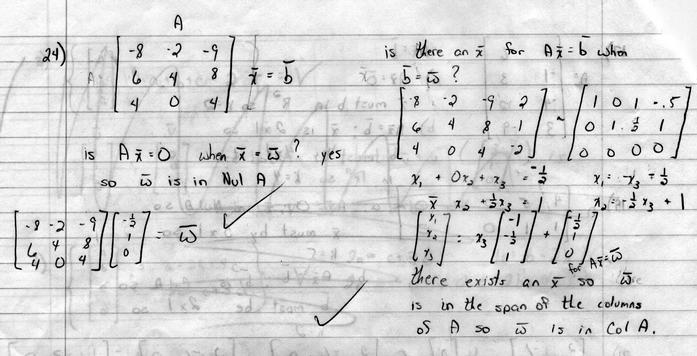 24)
A
[ -8 -2 -9
6 4 8
4 0 4 ] x̄ = b̄
is A x̄ = 0 when x̄ = w̄ ? yes
so w̄ is in Nul A
[ -8 -2 -9
6 4 8
4 0 4 ] [ -½
1
0 ] = w̄
is there an x̄ for A x̄ = b̄ when
b̄ = w̄ ?
[ -8 -2 -9 2
6 4 8 -1
4 0 4 -2 ] ~ [ 1 0 1 -.5
0 1 ½ 1
0 0 0 0 ]
x₁ + 0x₂ + x₃ = -½ x₁ = -x₃ - ½
x₂ + ½x₃ = 1 x₂ = -½ x₃ + 1
[ x₁
x₂
x₃ ] = x₃ [ -1
-½
1 ] + [ -½
1
0 ]
for A x̄ = w̄
there exists an x̄ so w̄
is in the span of the columns
of A so w̄ is in Col A.